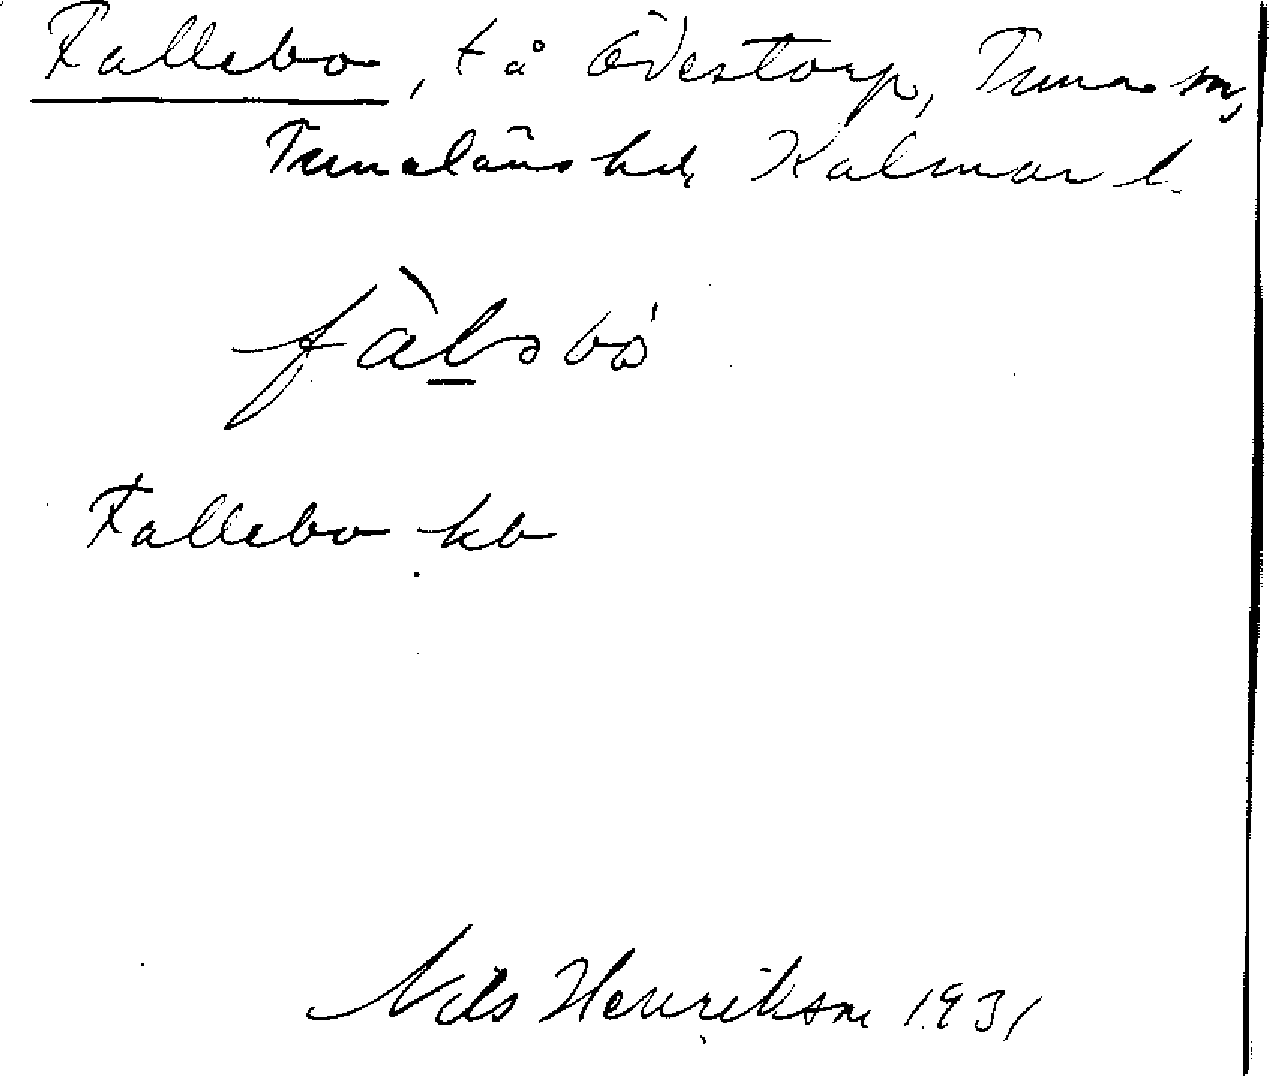 Fallebo, t å Ödestorp, Tuna sn,
Tunaläns hd, Kalmar l.
Fallebo kb
Nils Henrikson 1931